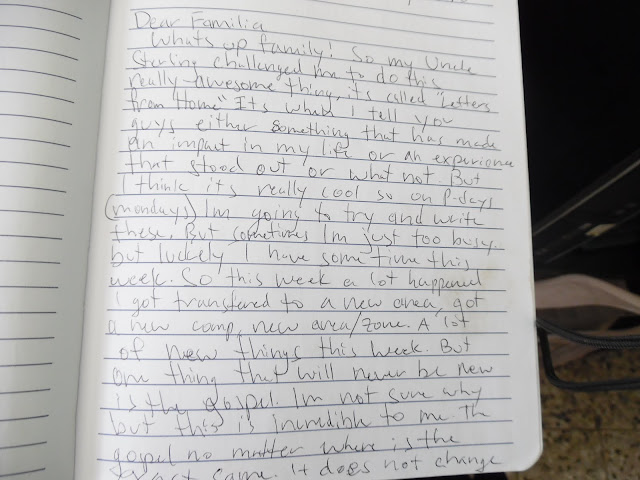 Dear Familia
Whats up family! So my Uncle
Sterling challenged me to do this
really awesome thing, its called "Letters
from Home" Its where I tell you
guys either something that has made
an impact in my life or an experience
that stood out or what not. But
I think its really cool so on P-days
(mondays) Im going to try and write
these. But sometimes Im just too busy.
but luckily I have some time this
week. So this week a lot happened
I got transfered to a new area, got
a new comp, new area/zone. A lot
of new things this week. But
one thing that will never be new
is the gospel. Im not sure why
but this is incredible to me. The
gospel no matter where is the
exact same. It does not change